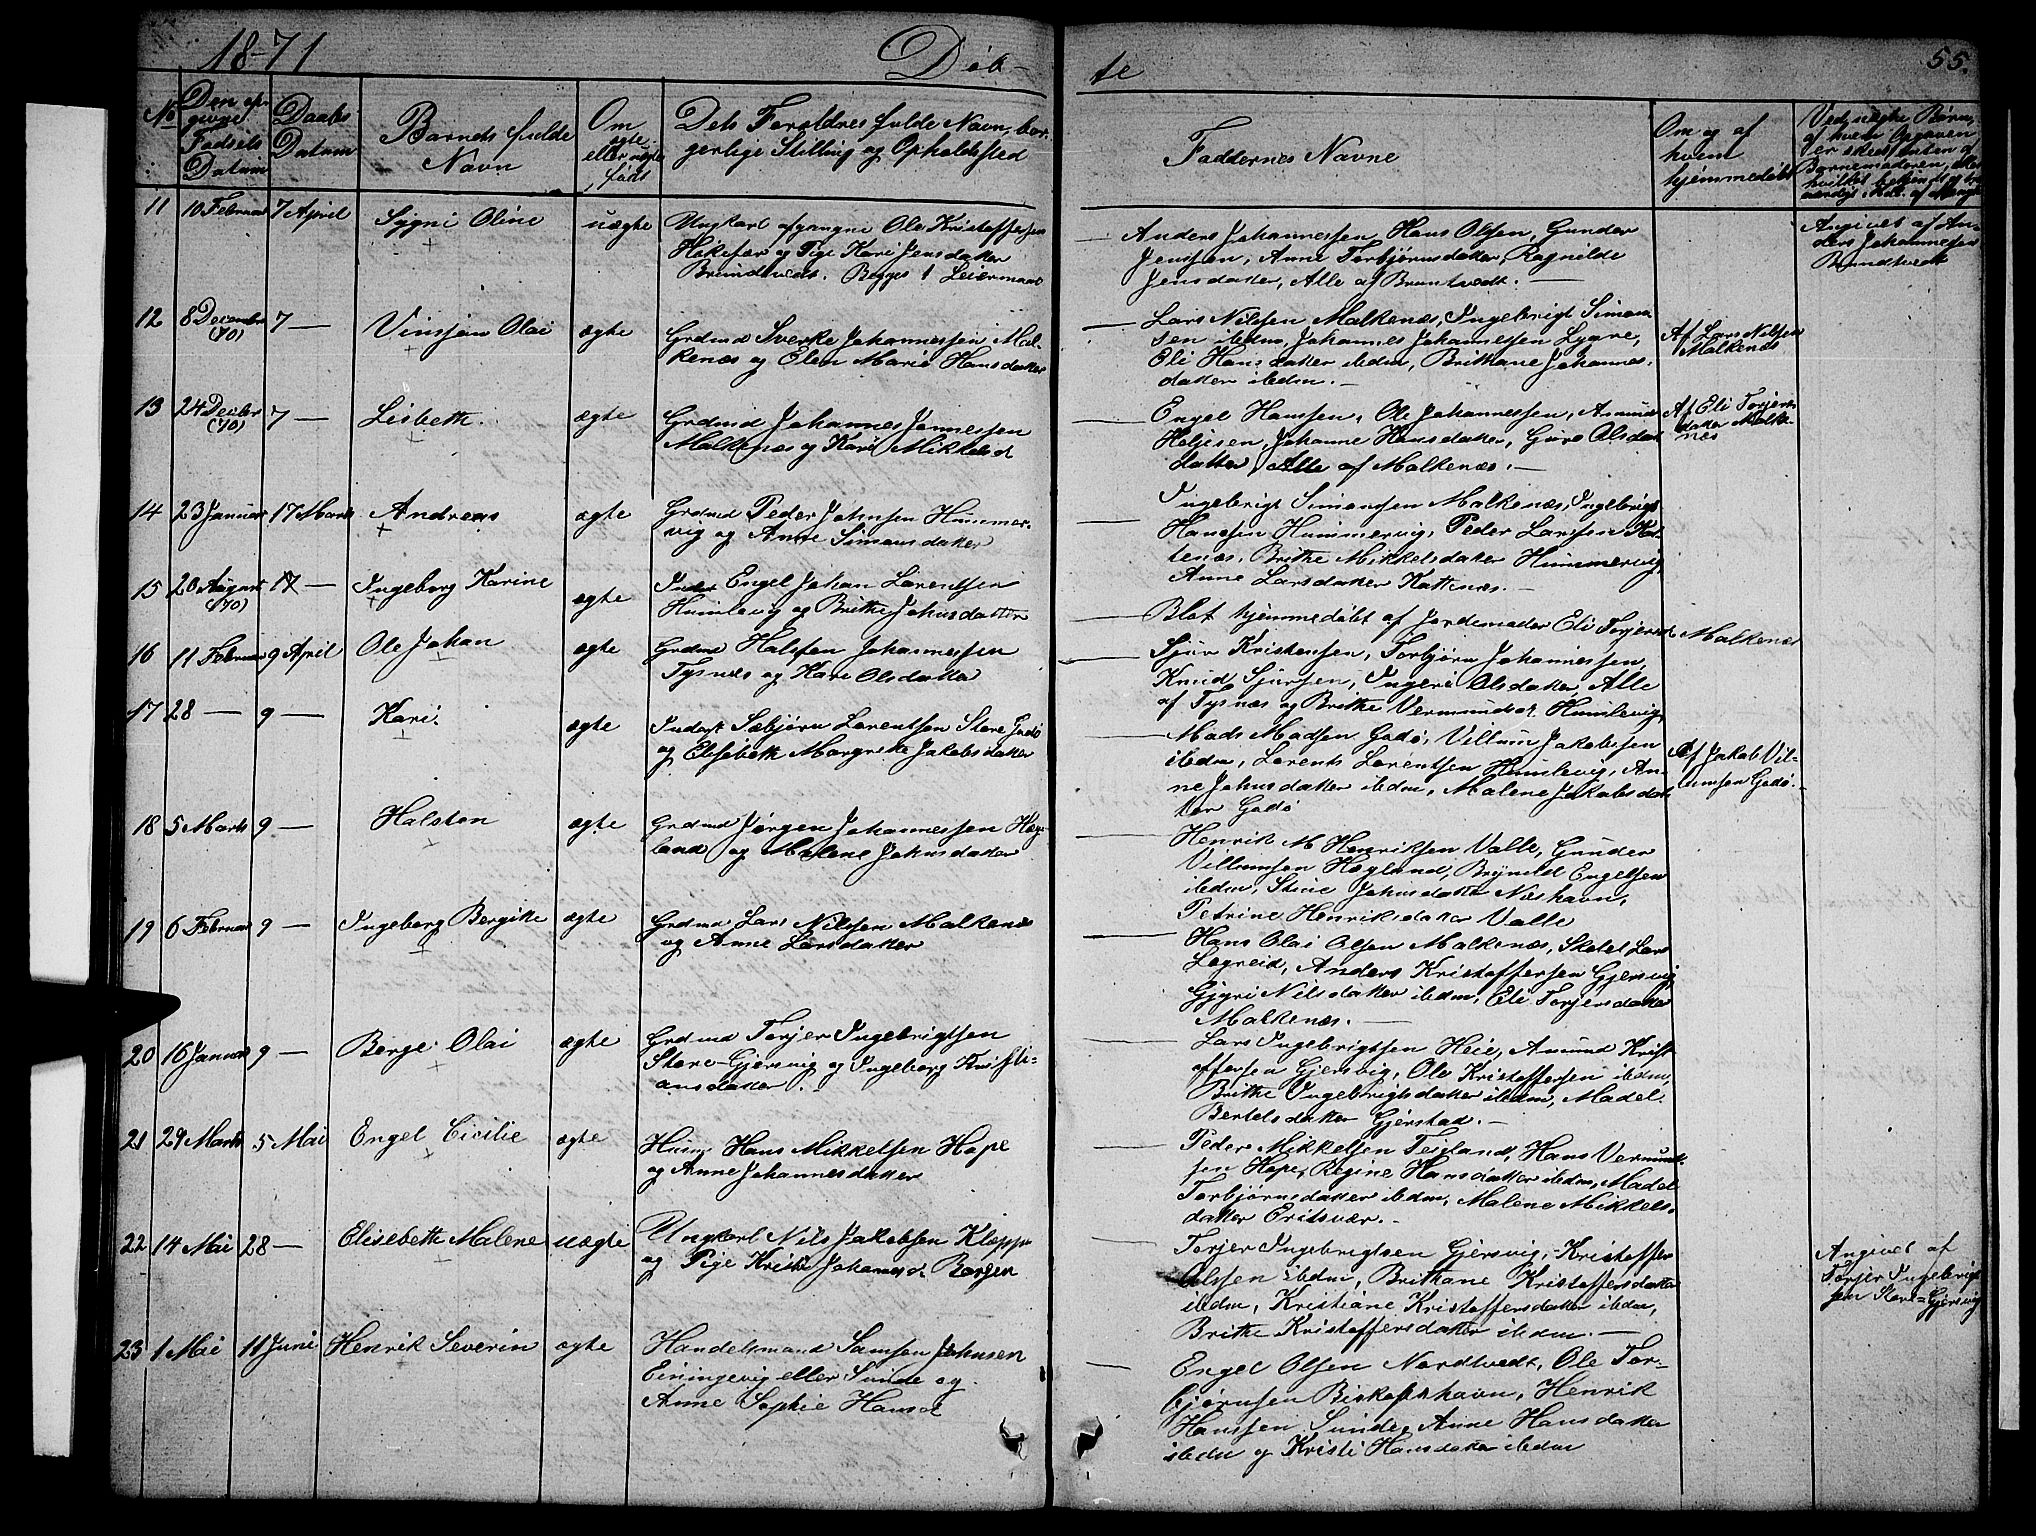 1871
Døb-
te
55.
No
Den op-
givne
Fødsels
Datum
Daabs
Datum
Barnets fulde
Navn
Om
ægte
eller uægte
født
Dets Forældres fulde Navn, bor-
gerlige Stilling og Opholdssted
Faddernes Navne
Om og af
hvem
hjemmedøbt
Ved uægte Børn,
af hvem Opgaven
er skeet, enten af
Barnemoderen,
11 10 Februar 7 April Sygni Oline uægte Ungkarl afgangne Ole Kristoffersen
og Pige Kari Jensdatter
Brundtvedt. Begges 1 Leiermaal
Anders Johannessen, Hans Olsen, Gunder
Jenssen, Anne Torbjørnsdatter, Ragnilde
Jensdatter, Alle af Bruntvedt. —
Angivet af An-
ders Johannessen
Brundtvedt
12 8 December (70) 7 — Vinsjan Olai ægte Grdmd Sverke Johannessen Mal-
kenæs og Elen Marie Hansdatter
Lars Nilssen Malkenæs, Ingebrigt Simon-
sen ibdm, Johannes Johannessen Lygre,
Eli Hansdatter ibdm, Brithane Johannes-
datter ibdm. —
Af Lars Nilssen
Malkenæs
13 24 Decbr (70) 7 — Lisbeth. ægte Grdmd Johannes Jonnessen
Malkenæs og Kari Mikkelsd
Engel Hanssen, Ole Johannessen, Amund
Heljesen, Johanne Hansdatter, Guro Olsdat
datter, Alle af Malkenæs. —
Af Eli Torjers-
datter Malke-
næs
14 23 Januar 17 Marts Andreas ægte Grdmd Peder Johnsen Hummer-
vig og Anne Simonsdatter
Ingebrigt Simonsen Malkenæs, Ingebrigt
Hanssen Hummervig, Peder Larssen Kat-
tenæs, Brithe Mikkelsdatter Hummervig,
Anne Larsdatter Kattenæs. —
15 20 August (70) 17 — Ingeborg Karine ægte Inderst Engel Johan Larentsen
Humlevig og Brithe Johnsdatter
Blot hjemmedøbt af Jordemoder Eli Torjersd Malkenæs
16 11 Februar 9 April Ole Johan ægte Grdmd Halsten Johannessen
Tysnæs og Kari Olsdatter
Sjur Kristenssen, Torbjørn Johannessen,
Knud Sjursen, Ingeri Olsdatter, Alle
af Tysnæs og Brithe Vermundsd. Humlevig,
17 28 — 9 — Kari. ægte Inderst Sæbjørn Larentsen Store Godø
og Elisabeth Margrethe Jakobsdatter
Mads Madsen Godø, Villum Jakobssen
ibdm, Larents Larentsen Humlevig, An-
ne Johnsdatter ibdm, Malene Jakobsdat
ter Godø
Af Jakob Vil-
lumsen Godø.
18 5 Marts 9 — Halsten ægte Grdmd Jørgen Johannessen Hæg-
land og Malene Johnsdatter
Henrik M Henriksen Valle, Gunder
Villumsen Hegland, Brynild Engelsen
ibdm, Stine Johnsdatter Næshavn,
Petrine Henriksdatter Valle
19 6 Februar 9 — Ingeborg Bergithe ægte Grdmd Lars Nilssen Malkenæs
og Anne Larsdatter
Hans Olai Olsen Malkenæs, Skotel Lars
Legreid, Anders Kristoffersen Gjersvig,
Gjyri Nilsdatter ibdm, Eli Torjersdatter
Malkenæs. —
20 16 Januar 9 — Berge Olai ægte Grdmd Torjer Ingebrigtsen
Store-Gjersvig og Ingeborg Kristi-
ansdatter.
Lars Ingebrigtsen Heie, Amund Krist
offersen Gjersvig, Ole Kristoffersen ibdm,
Brithe Ingebrigtsdatter ibdm, Madel
Bertelsdatter Gjerstad. —
21 29 Marts 5 Mai Engel Cicilie ægte Huusm Hans Mikkelsen Hope
og Anne Johannesdatter
Peder Mikkelsen Teigland, Hans Vermund-
sen Hope, Regine Hansdatter ibdm, Madel
Torbjørnsdatter ibdm, Malene Mikkels-
datter Eritsvær. —
22 14 Mai 28 — Elisebeth Malene uægte Ungkarl Nils Jakobsen Kleppe
og Pige Kristi Johannesd Borgen
Torjer Ingebrigtsen Gjersvig, Kristoffer
Olssen ibdm, Brithane Kristoffersdatter
ibdm, Kristiane Kristoffersdatter ibdm,
Brithe Kristoffersdatter ibdm. —
Angivet af
Torjer Ingebrigt-
sen Store-Gjersvig
23 1 Mai 11 Juni Henrik Severin ægte Handelsmand Samson Johnsen
Einingevig eller Sunde og
Anne Sophie Hansd
Engel Olsen Nordtvedt, Ole Tor-
bjørnsen Biskopshavn, Henrik
Hanssen Sunde, Anne Hansdatter
ibdm og Kristi Hansdatter ibdm